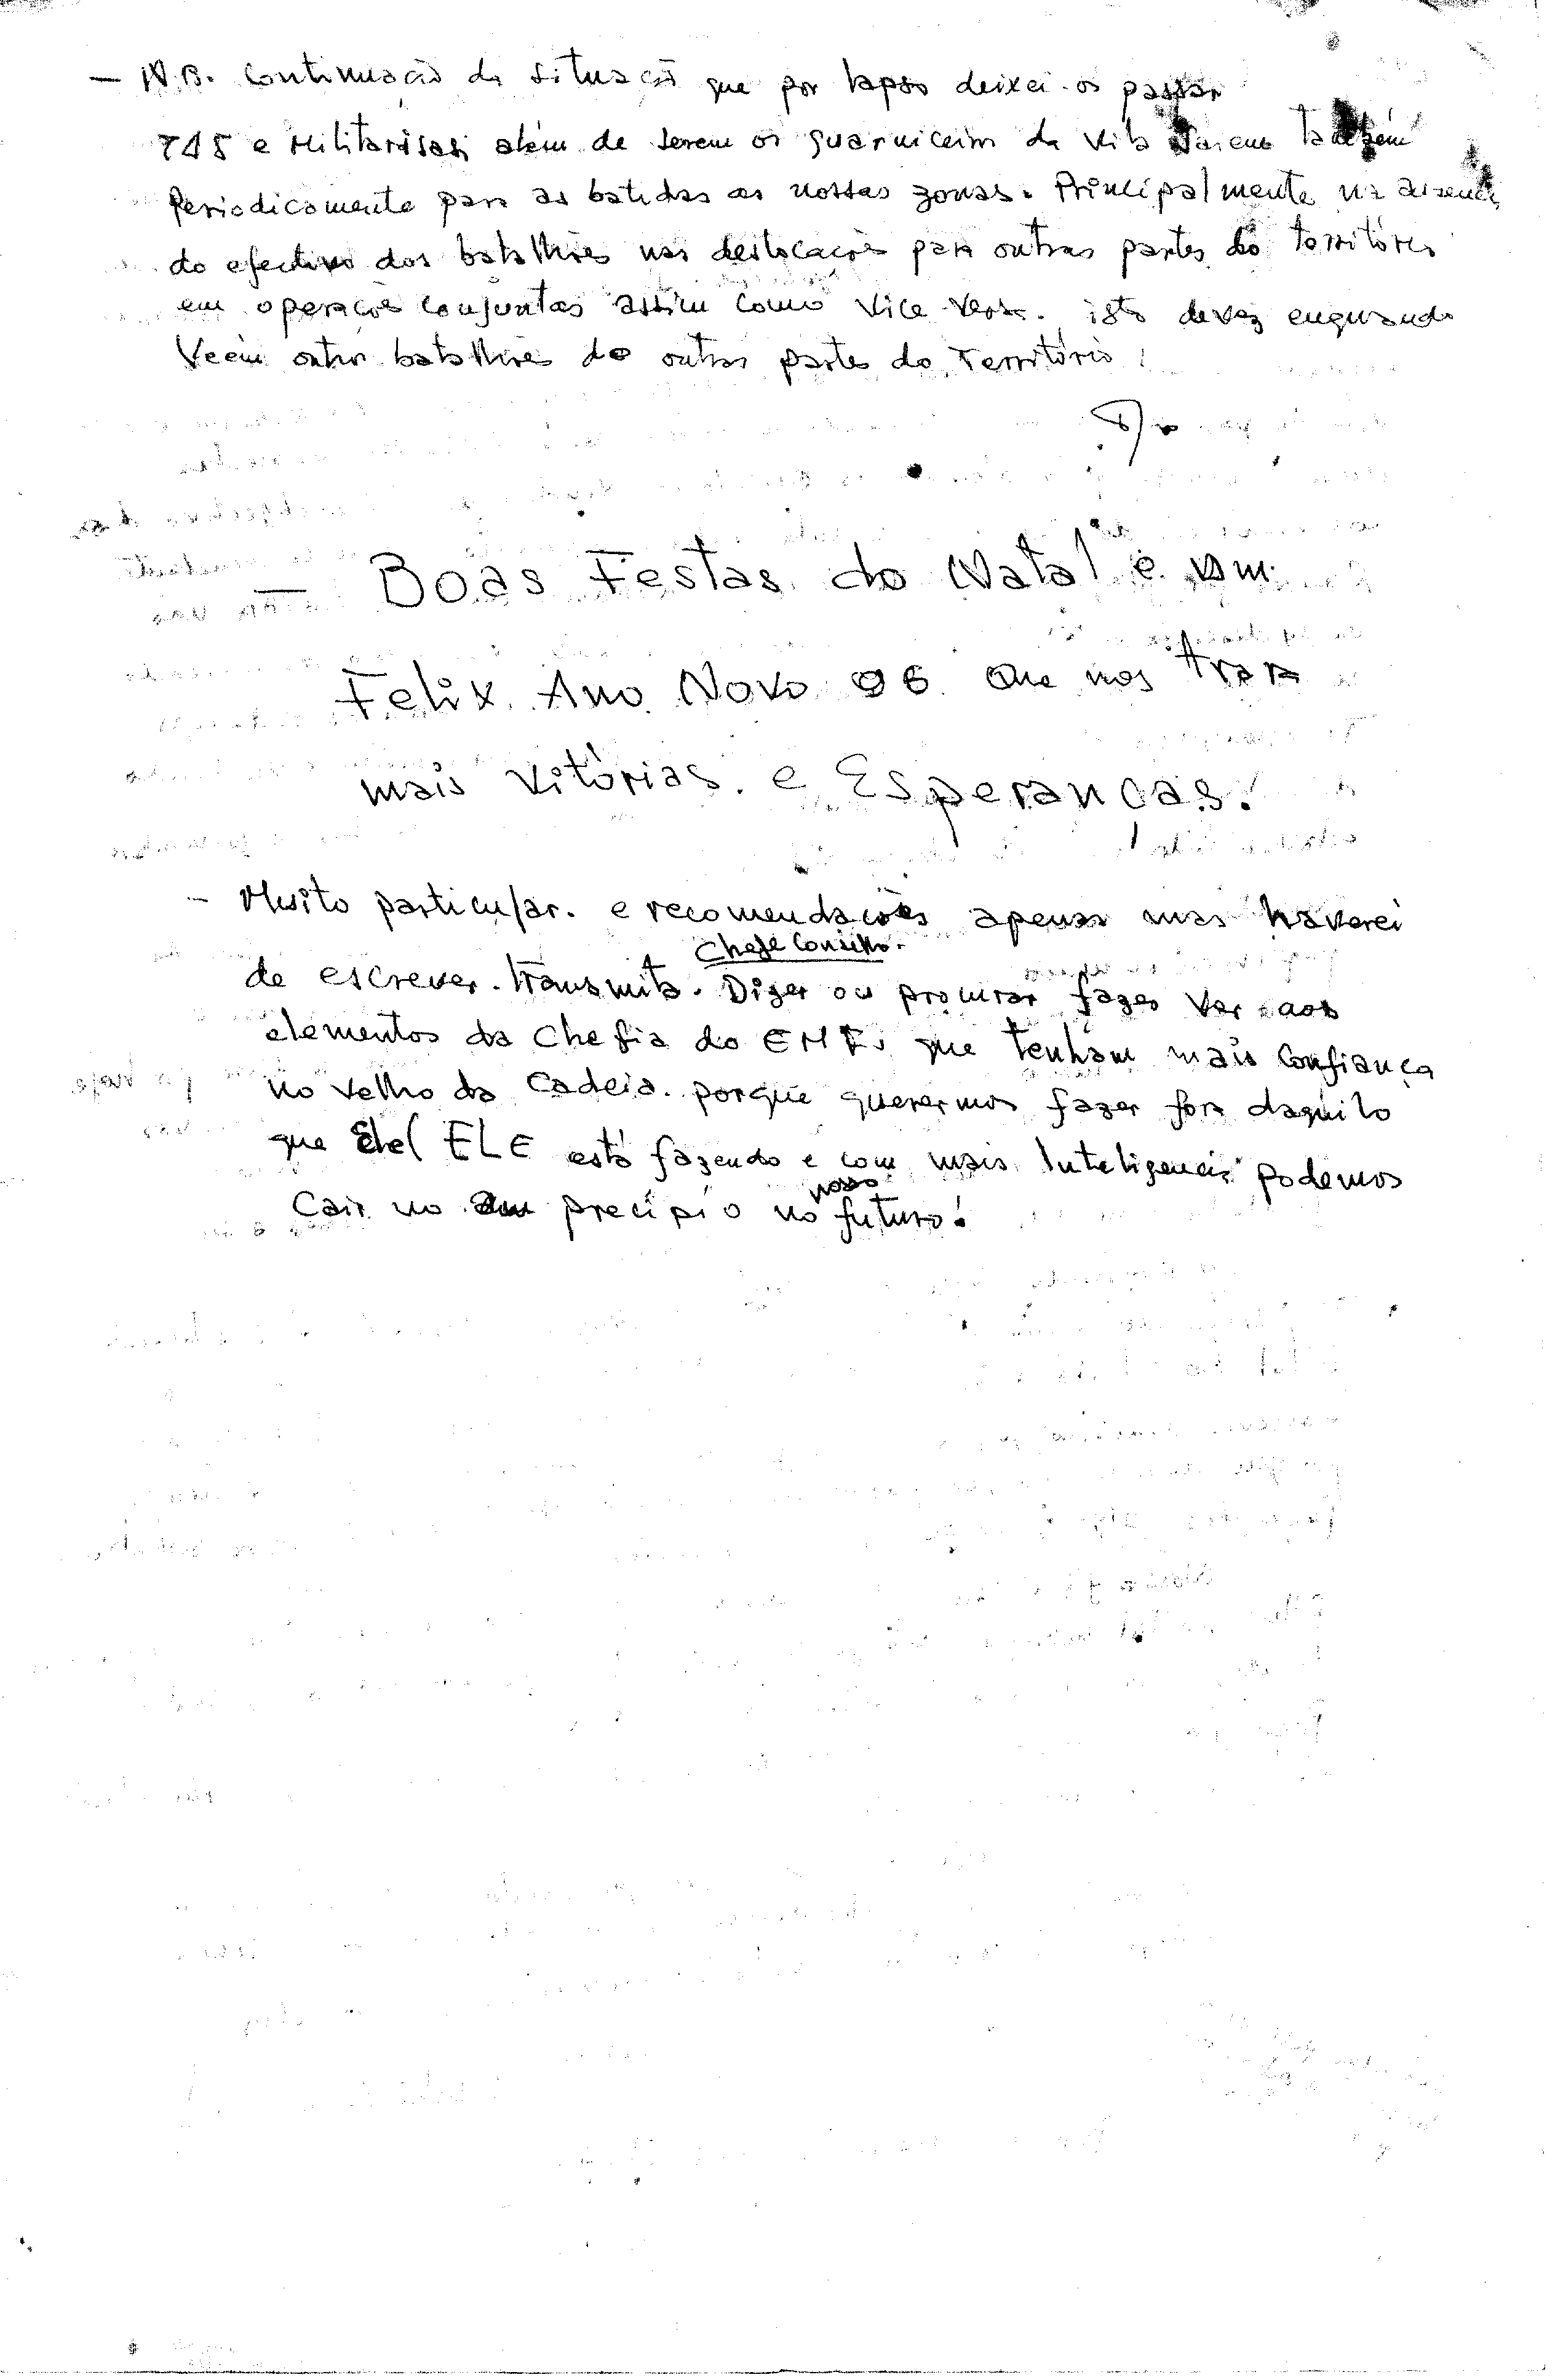 — N.B. Continuacão da situacão que por lapso deixei-os passar
745 e Militarisas além de serem os guarniceim da Vila saiem também
Periodicamente para as batidas as nossas zonas. Principalmente na ausencia
do efectivo dos batalhões nas deslocacões para outras partes do território
em operacões conjuntas assim como vice versa. isto devez enquando
Veem outros batalhões de outras partes do Território!
— Boas Festas do Natal e um
Felix Ano Novo 96 Que nos traga
mais Vitórias. e Esperancas!
- Muito particular. e recomendacões apenas mas haverei
Chefe Conselho.
de escrever. transmita. Dizer ou procurar fazer ver aos
elementos da Chefia do que tenham mais Confiança
no velho da Cadeia. porque querermos fazer fora daquilo
que ELE está fazendo e com mais Inteligencia podemos
nosso
Cair no precipio no futuro!